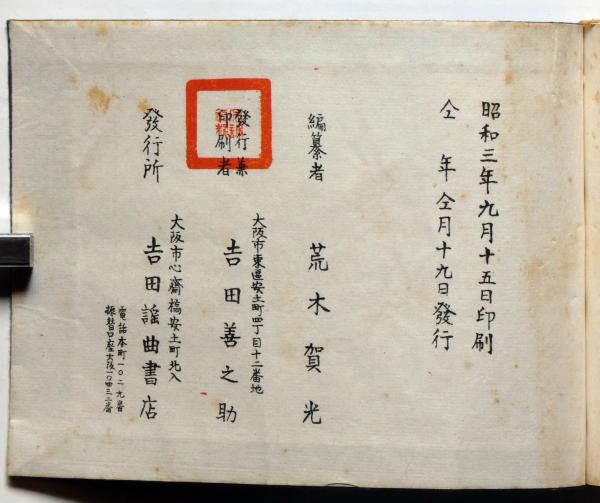 昭和三年九月十五日印刷
仝年仝月十九日發行
編纂者 荒木賀光
大阪市東區安土町四丁目十二番地
發行兼印刷者 吉田善之助
大阪市心齋橋安土町北入
發行所 吉田謡曲書店
電話本町一〇二九番
振替口座大阪一〇四三二番